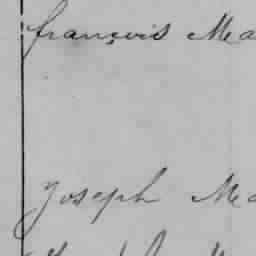 françois Ma
Joseph Ma